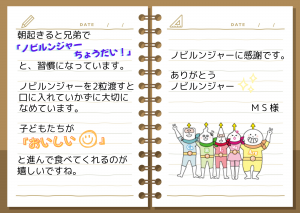 DATE / /
朝起きると兄弟で
『ノビルンジャー
ちょうだい！』
と、習慣になっています。
ノビルンジャーを2粒渡すと
口に入れていかずに大切に
なめています。
子どもたちが
『おいしい』
と進んで食べてくれるのが
嬉しいですね。
DATE / /
ノビルンジャーに感謝です。
ありがとう
ノビルンジャー
MS様